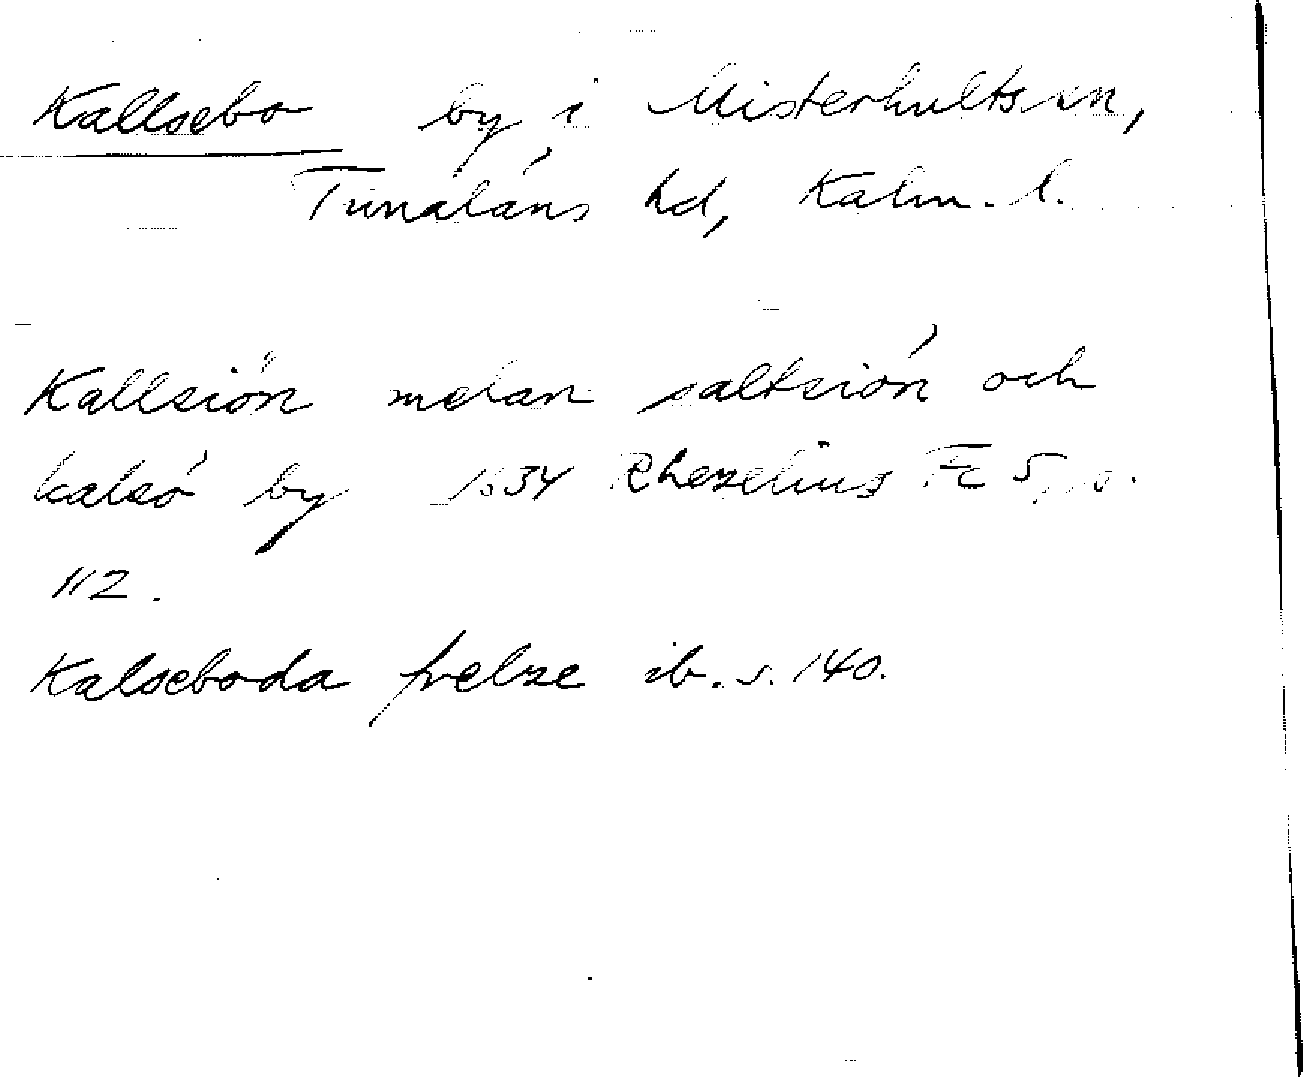 Kallsebo by i Misterhults sn,
Tunaläns hd, Kalm. l.
Kallsión melan saltsión och
kalsó by 1634 Rhezelius Fc 5, s.
112.
Kalseboda frelse ib. s. 140.